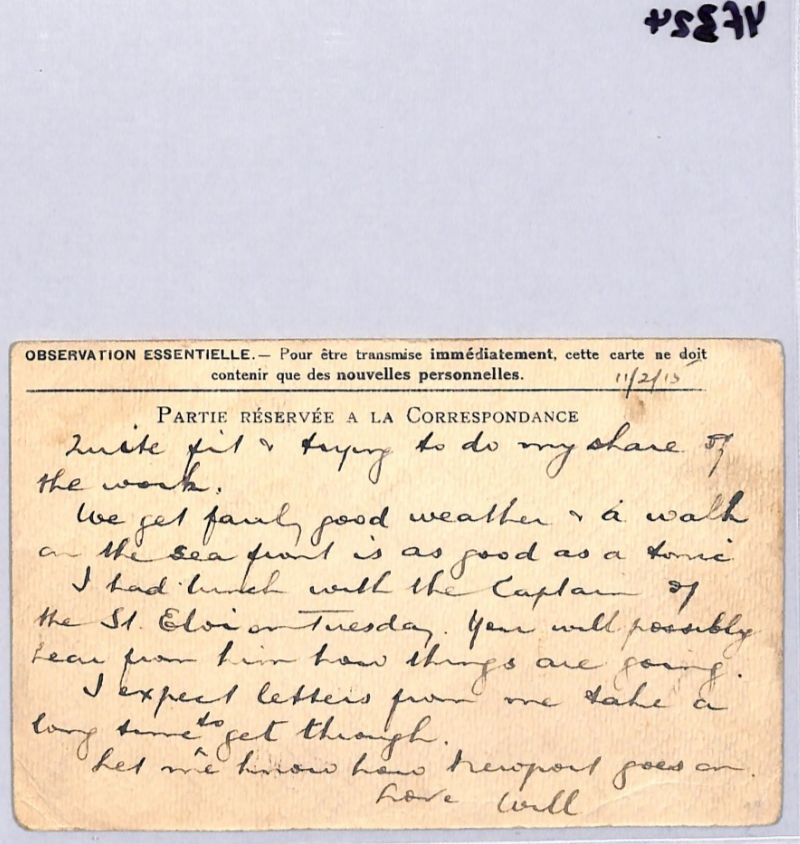 YF324
OBSERVATION ESSENTIELLE. — Pour être transmise immédiatement, cette carte ne doit
contenir que des nouvelles personnelles.
11/2/15
PARTIE RÉSERVÉE A LA CORRESPONDANCE
Quite fit & trying to do my share of
the work.
We get fairly good weather & a walk
on the sea front is as good as a tonic
I had lunch with the Captain of
the St. Eloi on Tuesday. You will possibly
hear from him how things are going.
I expect letters from me take a
long time to get through.
Let me know how Newport goes on.
Love Will